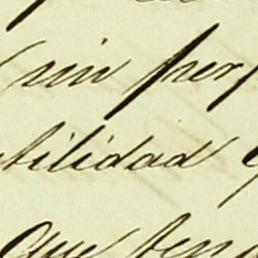 sin per
bilidad
que ten